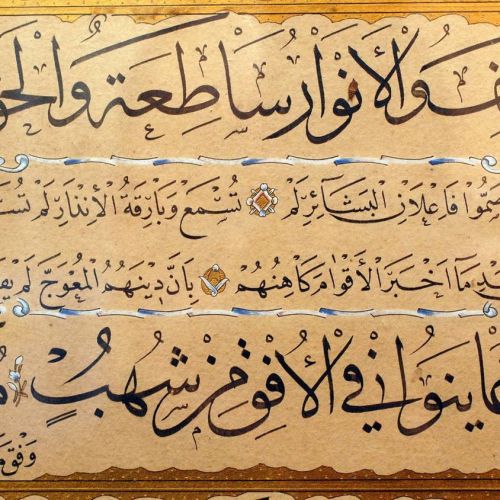 وَالْأَنْوَارُ سَاطِعَةٌ
صَمُّوا فَإِعْلَانُ الْبَشَائِرِ لَمْ تُسْمَعْ وَبَارِقَةُ الْإِنْذَارِ لَمْ
مَا أَخْبَرَ الْأَقْوَامَ كَاهِنُهُمْ بِأَنَّ دِينَهُمُ الْمُعْوَجَّ لَمْ
عَايَنُوا فِي الْأُفْقِ مِنْ شُهُبٍ
وَفْقَ